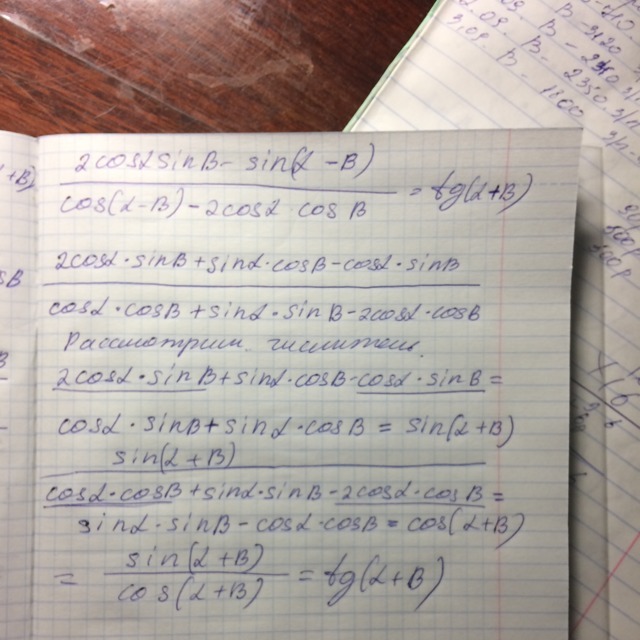 2cosα sinB - sin(α - B)
cos(α-B) - 2cosα cosB = tg(α+B)
2cosα·sinB + sinα·cosB - cosα·sinB
cosα·cosB + sinα·sinB - 2cosα·cosB
Рассмотрим числитель.
2cosα·sinB + sinα·cosB - cosα·sinB =
cosα·sinB + sinα·cosB = sin(α+B)
sin(α+B)
cosα·cosB + sinα·sinB - 2cosα·cosB =
sinα·sinB - cosα·cosB = cos(α+B)
= sin(α+B)
cos(α+B) = tg(α+B)